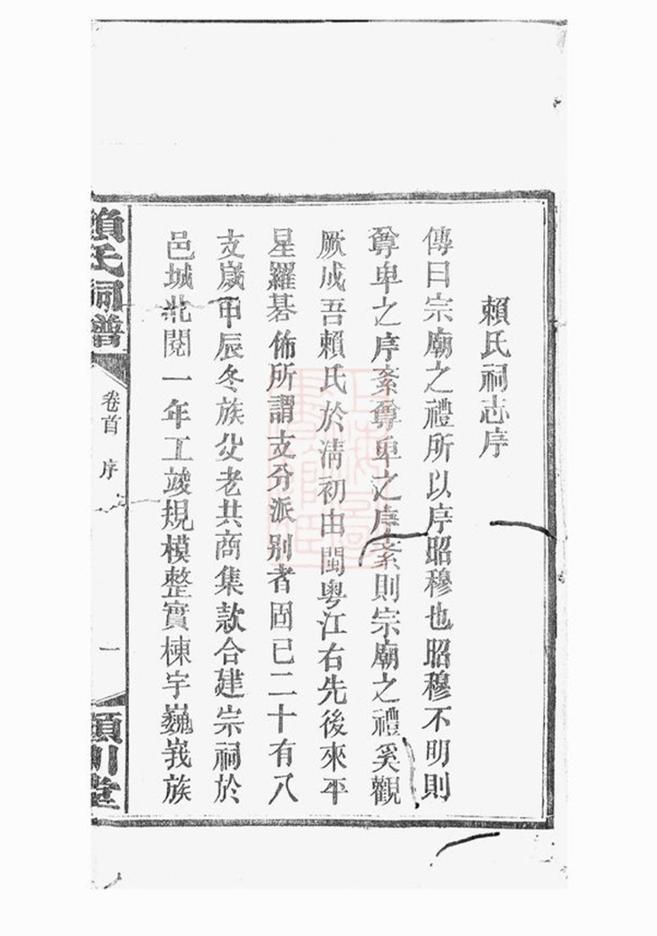 賴氏祠志序
傳曰宗廟之禮所以序昭穆也昭穆不明則
尊卑之序紊尊卑之序紊則宗廟之禮奚觀
厥成吾賴氏於清初由閩粵江右先後來平
星羅碁佈所謂支分派别者固已二十有八
支歲甲辰冬族父老共商集款合建宗祠於
邑城北閱一年工竣規模整實棟宇巍峩族
賴氏祠譜
卷首 序
一
頴川堂